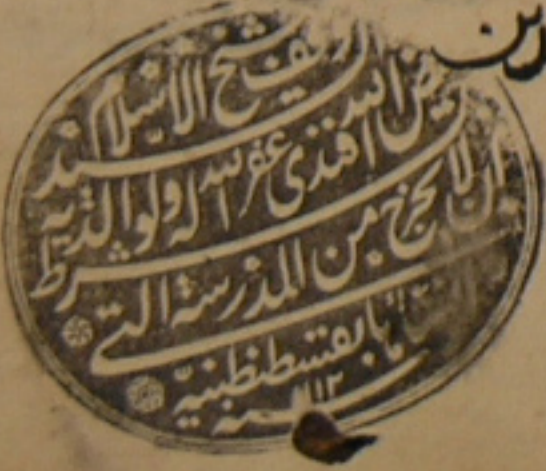 وقف شيخ الاسلام السيد
فيض الله افندى غفر الله له ولوالديه
بشرط ان لا يخرج من المدرسة التي
انشاها بقسطنطنية
سنه